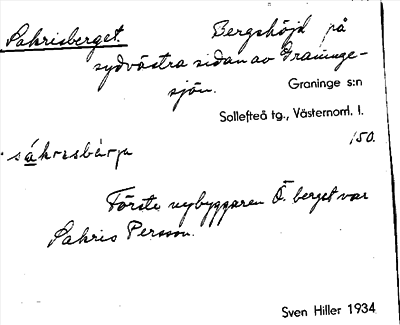 Sakrisberget. Bergshöjd på
sydvästra sidan av Graninge-
sjön.
Graninge s:n
Sollefteå tg., Västernorrl. l.
150.
Förste nybyggaren Ö. berget var
Sakris Persson.
Sven Hiller 1934